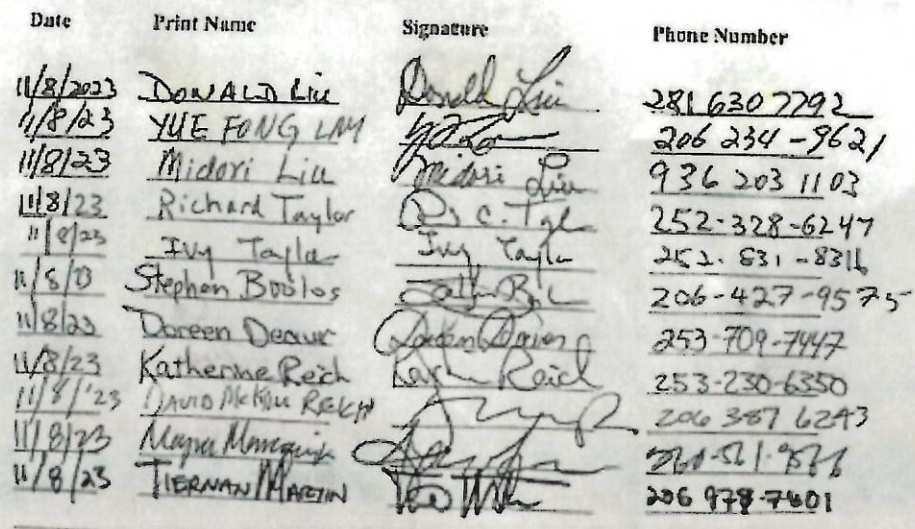 Date Print Name Signature Phone Number
11/8/2023 DONALD Liu Donald Liu 281 630 7792
11/8/23 YUE FONG LAM 206 234-9621
11/8/23 Midori Liu Midori Liu 936 203 1103
11/8/23 Richard Taylor 252-328-6247
11/8/23 Ivy Taylor Ivy Taylor 252-531-8316
11/8/23 Stephen Boolos 206-427-9575
11/8/23 Doreen 253-709-7447
11/8/23 Katherine Reich Reich 253-230-6350
11/8/'23 DAVID REICH 206 387 6243
11/8/23
11/8/23 TIERNAN MARTIN 206 978-7601